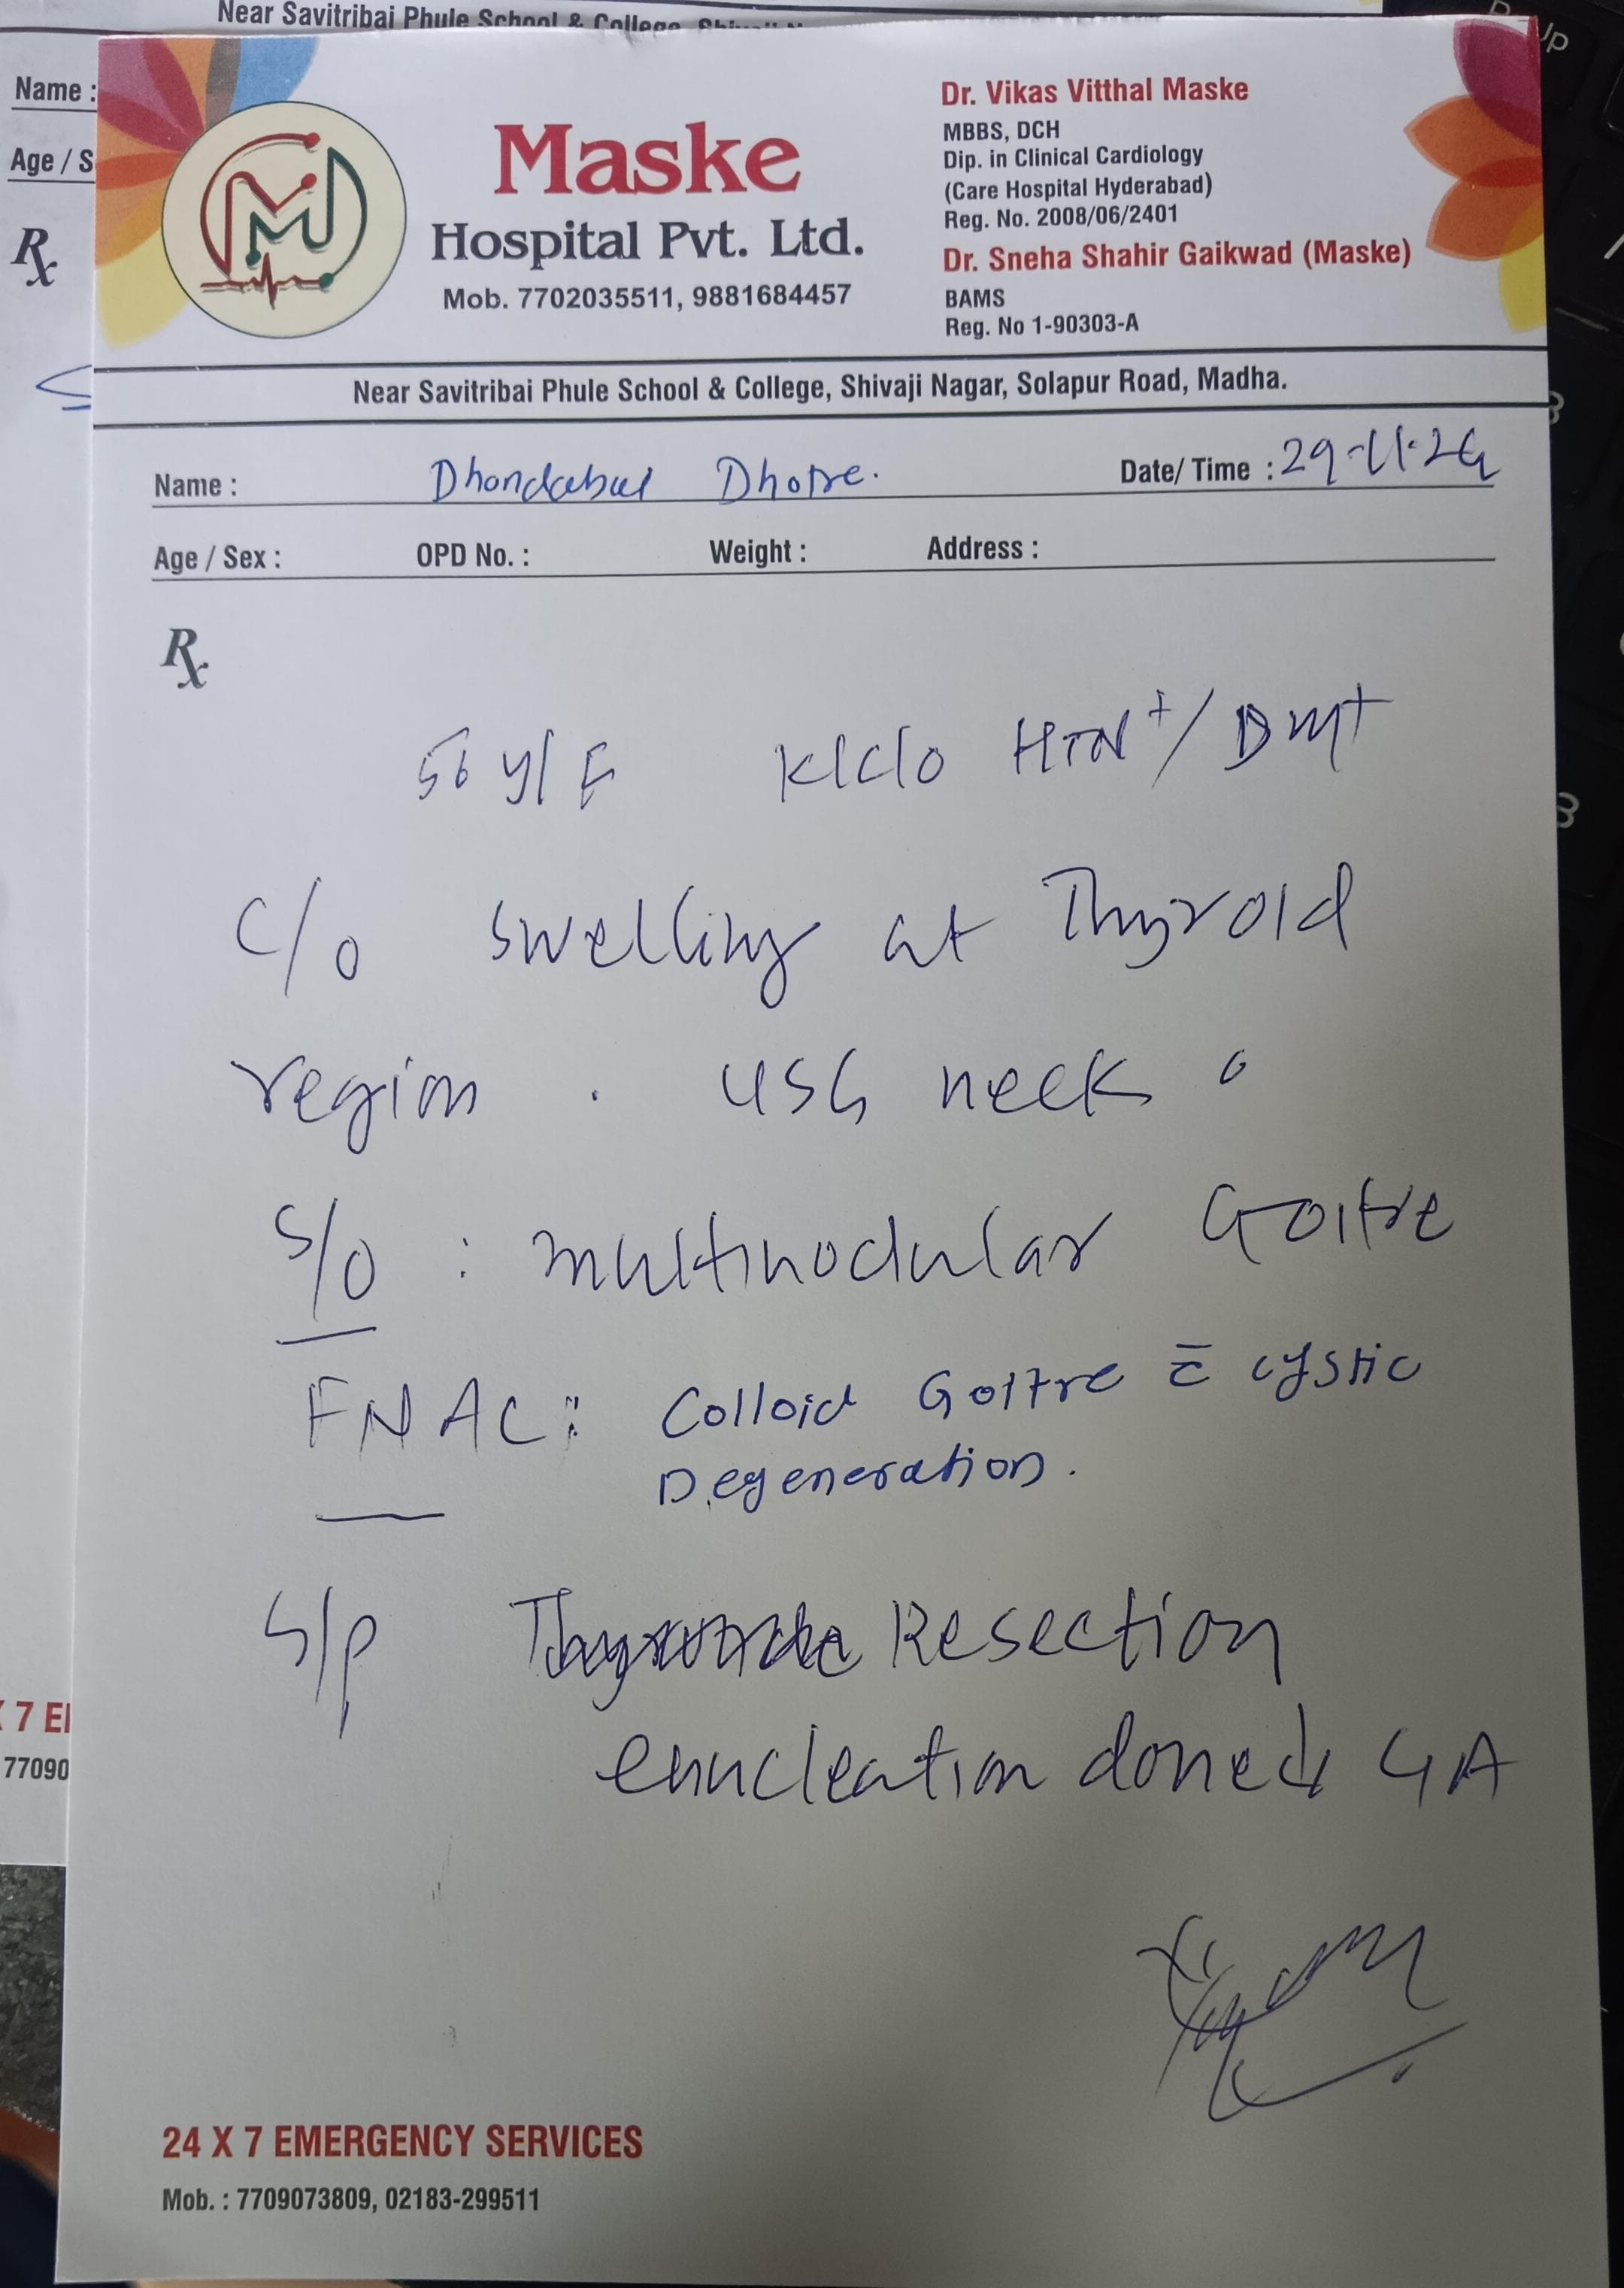 Near Savitribai Phule School & College, Shivaji N
Name :
Age / S
Rx
Maske
Hospital Pvt. Ltd.
Mob. 7702035511, 9881684457
Dr. Vikas Vitthal Maske
MBBS, DCH
Dip. in Clinical Cardiology
(Care Hospital Hyderabad)
Reg. No. 2008/06/2401
Dr. Sneha Shahir Gaikwad (Maske)
BAMS
Reg. No 1-90303-A
Near Savitribai Phule School & College, Shivaji Nagar, Solapur Road, Madha.
Name : Dhondabai Dhotre. Date/ Time : 29-11-24
Age / Sex : OPD No. : Weight : Address :
Rx
56 y/F K/C/O HTN+/ DM+
C/o swelling at Thyroid
region . USG neck
S/O : multinodular Goitre
FNAC: Colloid Goitre c̄ cystic
Degeneration.
S/p Resection
enucleation done GA
X 7 E
77090
24 X 7 EMERGENCY SERVICES
Mob. : 7709073809, 02183-299511